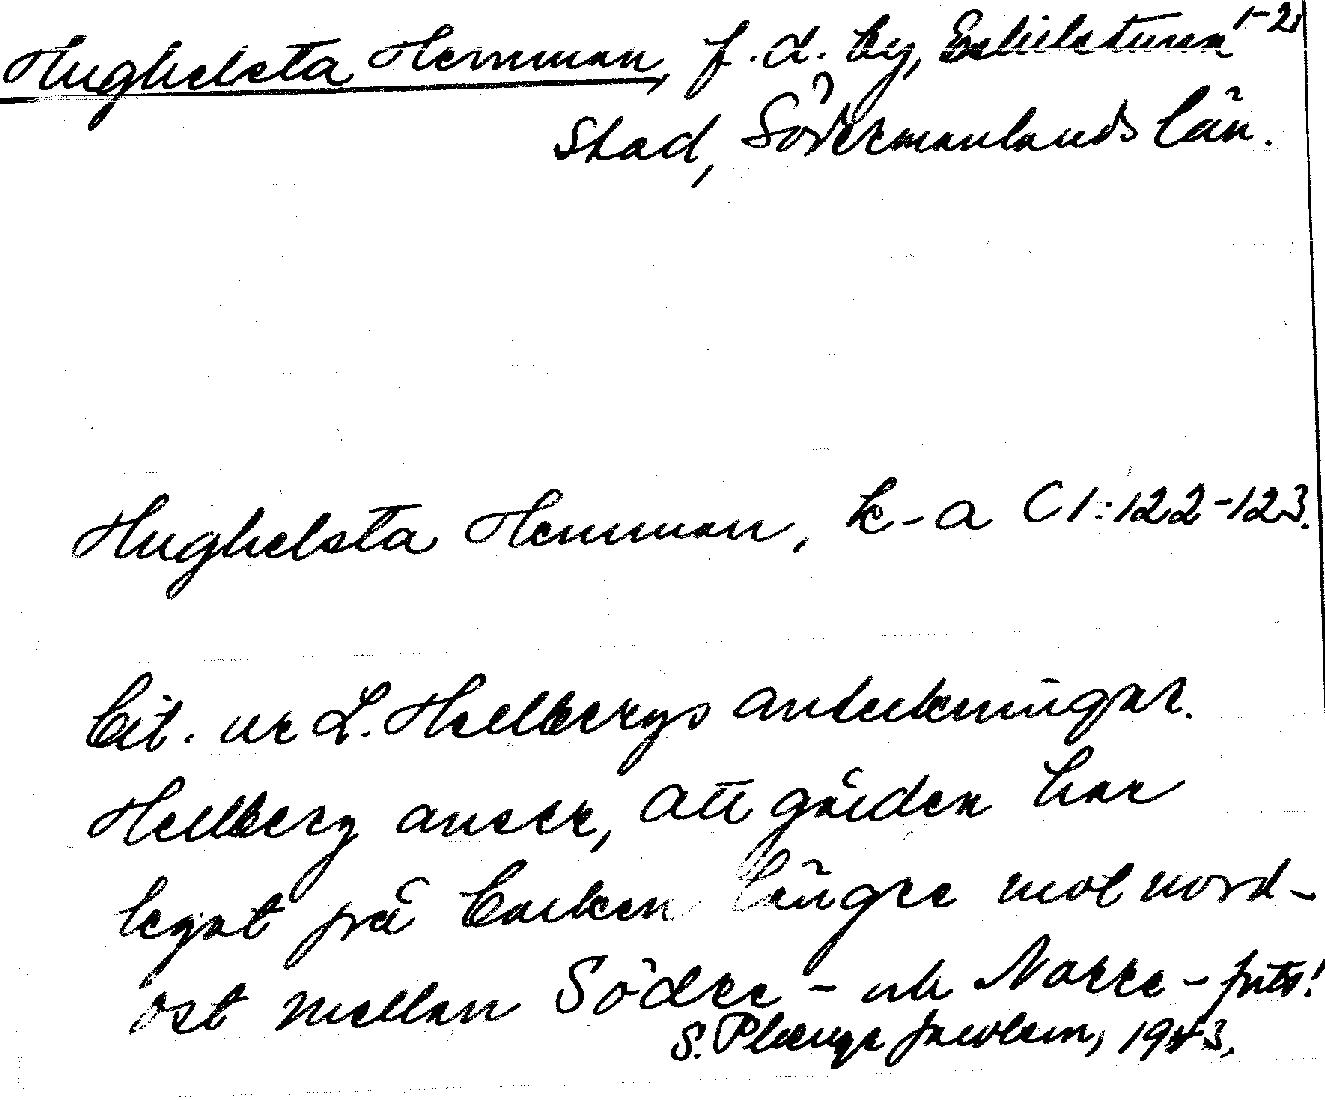 Hughelsta Hemman, f.d. by, Eskilstuna 1-2
stad, Södermanlands län.
Hughelsta Hemman, k-a C1:122-123.
Cit. ur L. Hellbergs anteckningar.
Hellberg anser, att gården har
legat på backen längre mot nord-
ost mellan Södre- och Norre-
S. Plænge Jacobson, 1943.